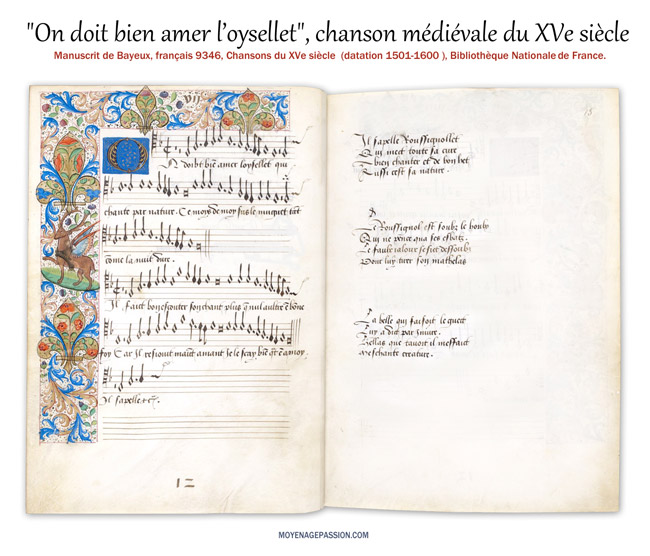 "On doit bien amer l'oysellet", chanson médiévale du XVe siècle
Manuscrit de Bayeux, français 9346, Chansons du XVe siècle (datation 1501-1600 ), Bibliothèque Nationale de France.
VII
N doibt biē amer loysellet qui
chante par nature. Ce moys de moy sus le muguet tāt
come la nuit dure.
Il fait bon escouter son chant plus q̄ nul aultre ē bōne
foy Car il resiouit maīt amant Je le scay biē
Il sapelle
12
Il sapelle Roussignollet
Qui meet toute sa cure
A bien chanter et de bon het
Aussi cest sa nature.
Le Roussignol est soubz le houlx
Qui ne pence qua ses esbatz.
Le faulx ialoux se siet dessoubz
Pour luy tirer son mathelas
La belle qui faisoit le guect
Luy a dit par iniure.
Hellas que tauoit il meffait
Meschante creature.
MOYENAGEPASSION.COM